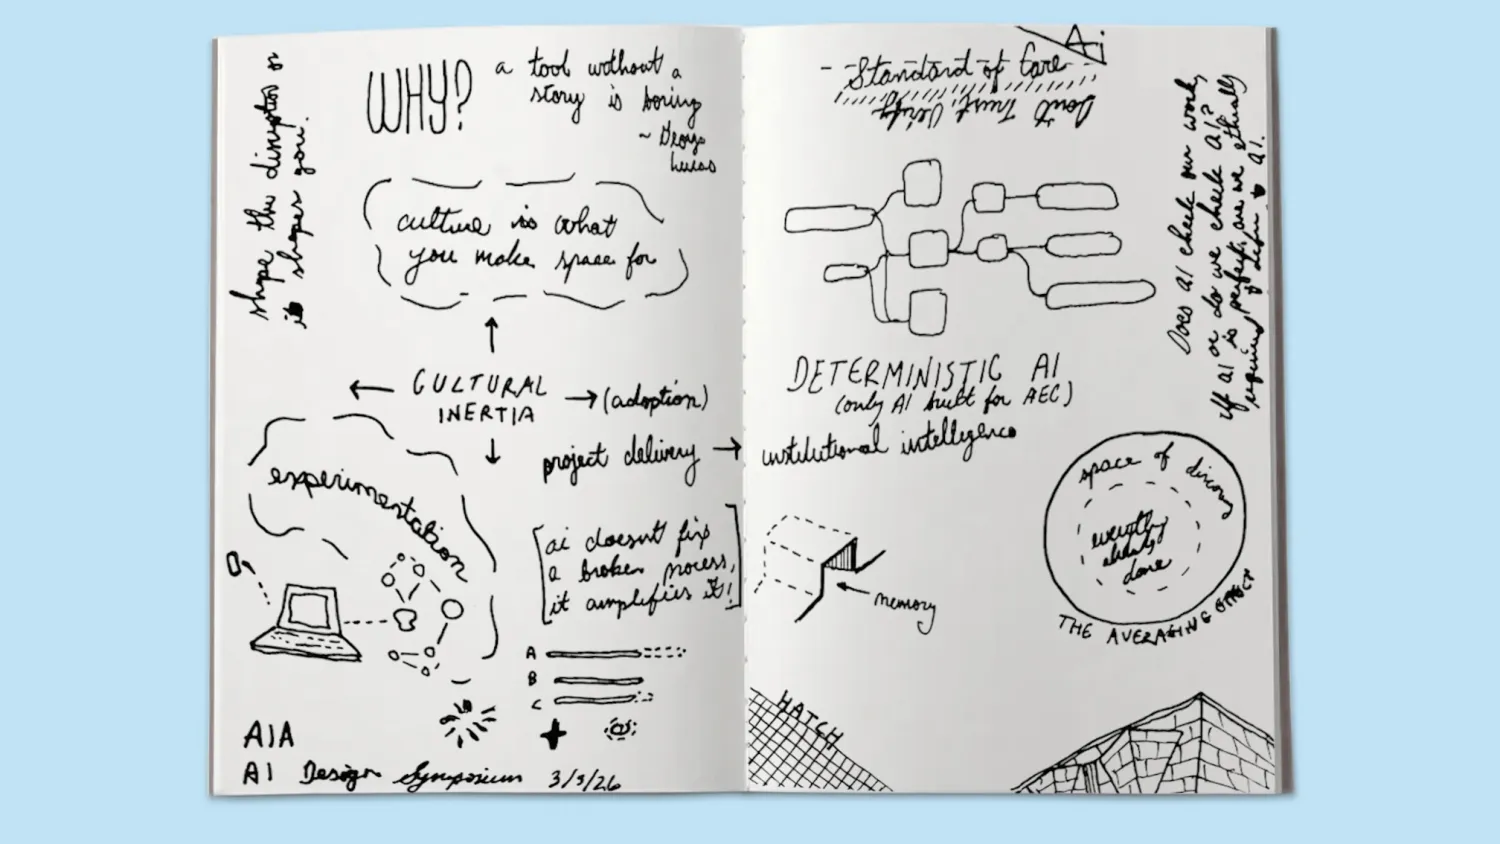 shape the disruption or
it shapes you!
WHY?
a tool without a
story is boring
~ George
Lucas
culture is what
you make space for
CULTURAL
INERTIA
(adoption)
project delivery
experimentation
ai doesn't fix
a broken process,
it amplifies it!
A
B
C
AIA
AI Design Symposium 3/3/26
Ai
Standard of Care
Don't Trust, Verify
Does AI check our work,
or do we check AI?
If AI is perfect, are we ethically
required AI.
DETERMINISTIC AI
(only AI built for AEC)
institutional intelligence
space of discovery
everything
already
done
THE AVERAGING EFFECT
memory
HATCH